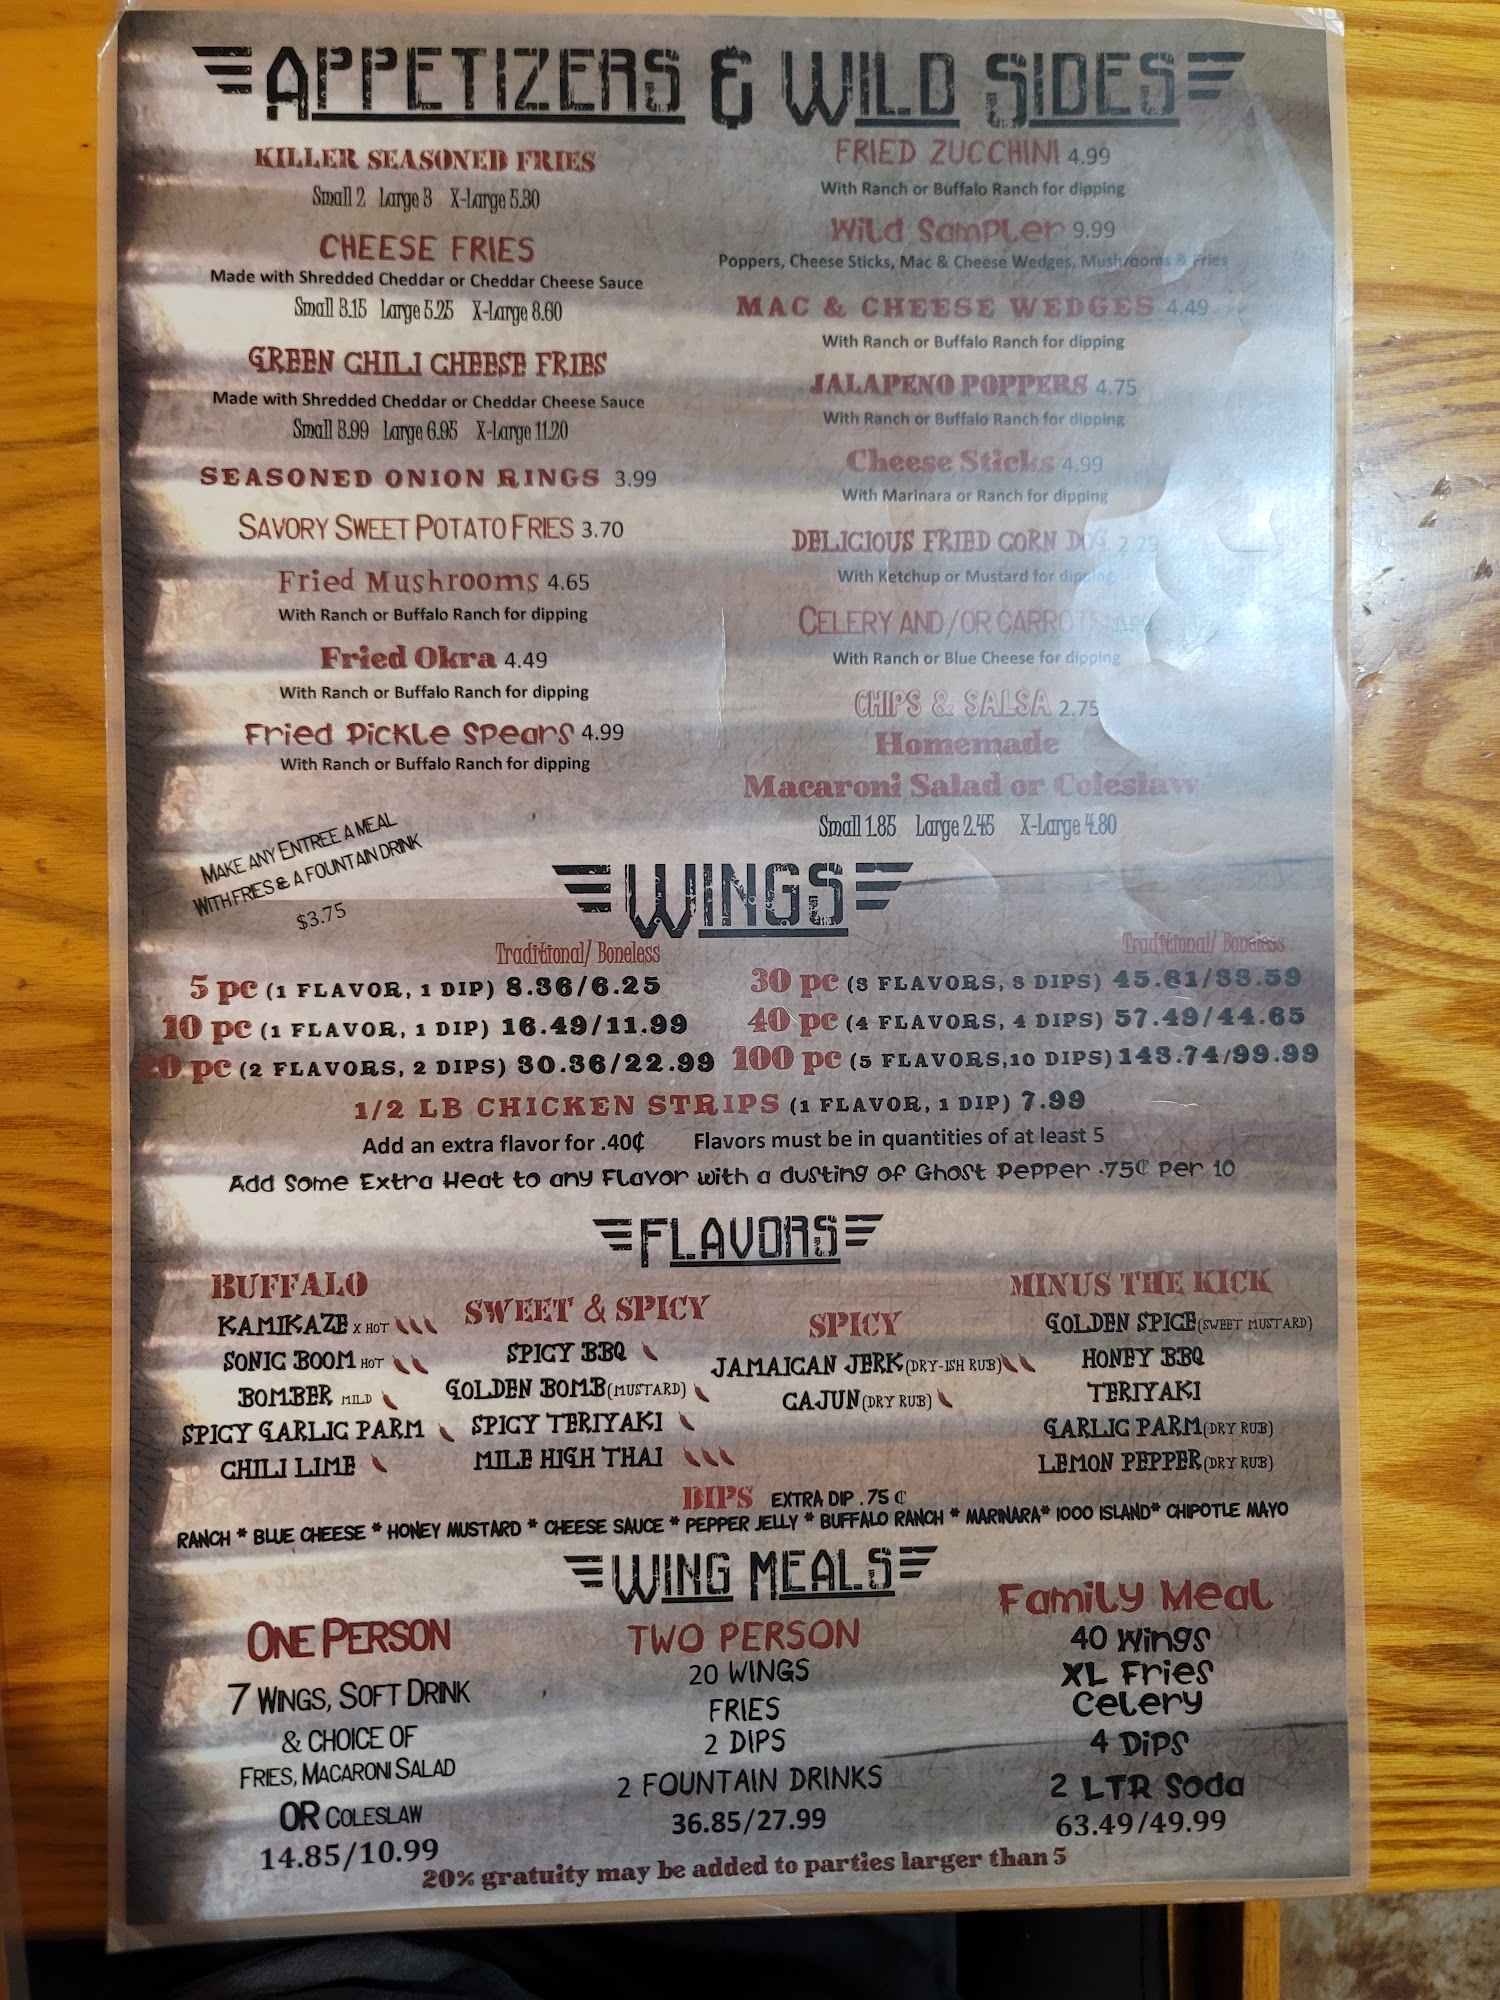 APPETIZERS & WILD SIDES
KILLER SEASONED FRIES
Small 2 Large 3 X-Large 5.30
CHEESE FRIES
Made with Shredded Cheddar or Cheddar Cheese Sauce
Small 3.15 Large 5.25 X-Large 8.60
GREEN CHILI CHEESE FRIES
Made with Shredded Cheddar or Cheddar Cheese Sauce
Small 3.99 Large 6.95 X-Large 11.20
SEASONED ONION RINGS 3.99
SAVORY SWEET POTATO FRIES 3.70
Fried Mushrooms 4.65
With Ranch or Buffalo Ranch for dipping
Fried Okra 4.49
With Ranch or Buffalo Ranch for dipping
Fried Pickle Spears 4.99
With Ranch or Buffalo Ranch for dipping
FRIED ZUCCHINI 4.99
With Ranch or Buffalo Ranch for dipping
Wild Sampler 9.99
Poppers, Cheese Sticks, Mac & Cheese Wedges, Mushrooms & Fries
MAC & CHEESE WEDGES 4.49
With Ranch or Buffalo Ranch for dipping
JALAPENO POPPERS 4.75
With Ranch or Buffalo Ranch for dipping
Cheese Sticks 4.99
With Marinara or Ranch for dipping
DELICIOUS FRIED CORN DOG 2.29
With Ketchup or Mustard for dipping
CELERY AND/OR CARROTS
With Ranch or Blue Cheese for dipping
CHIPS & SALSA 2.75
Homemade
Macaroni Salad or Coleslaw
Small 1.85 Large 2.45 X-Large 4.80
MAKE ANY ENTREE A MEAL
WITH FRIES & A FOUNTAIN DRINK
$3.75
WINGS
Traditional/ Boneless
5 pc (1 FLAVOR, 1 DIP) 8.36/6.25
10 pc (1 FLAVOR, 1 DIP) 16.49/11.99
20 pc (2 FLAVORS, 2 DIPS) 30.36/22.99
Traditional/ Boneless
30 pc (3 FLAVORS, 3 DIPS) 45.61/33.59
40 pc (4 FLAVORS, 4 DIPS) 57.49/44.65
100 pc (5 FLAVORS,10 DIPS) 143.74/99.99
1/2 LB CHICKEN STRIPS (1 FLAVOR, 1 DIP) 7.99
Add an extra flavor for .40¢ Flavors must be in quantities of at least 5
Add Some Extra Heat to any Flavor with a dusting of Ghost Pepper .75¢ per 10
FLAVORS
BUFFALO
KAMIKAZE X HOT
SONIC BOOM HOT
BOMBER MILD
SPICY GARLIC PARM
CHILI LIME
SWEET & SPICY
SPICY BBQ
GOLDEN BOMB(MUSTARD)
SPICY TERIYAKI
MILE HIGH THAI
SPICY
JAMAICAN JERK(DRY-ISH RUB)
CAJUN(DRY RUB)
MINUS THE KICK
GOLDEN SPICE(SWEET MUSTARD)
HONEY BBQ
TERIYAKI
GARLIC PARM(DRY RUB)
LEMON PEPPER(DRY RUB)
DIPS EXTRA DIP .75 ¢
RANCH * BLUE CHEESE * HONEY MUSTARD * CHEESE SAUCE * PEPPER JELLY * BUFFALO RANCH * MARINARA* 1000 ISLAND* CHIPOTLE MAYO
WING MEALS
ONE PERSON
7 WINGS, SOFT DRINK
& CHOICE OF
FRIES, MACARONI SALAD
OR COLESLAW
14.85/10.99
TWO PERSON
20 WINGS
FRIES
2 DIPS
2 FOUNTAIN DRINKS
36.85/27.99
Family Meal
40 Wings
XL Fries
Celery
4 Dips
2 LTR Soda
63.49/49.99
20% gratuity may be added to parties larger than 5